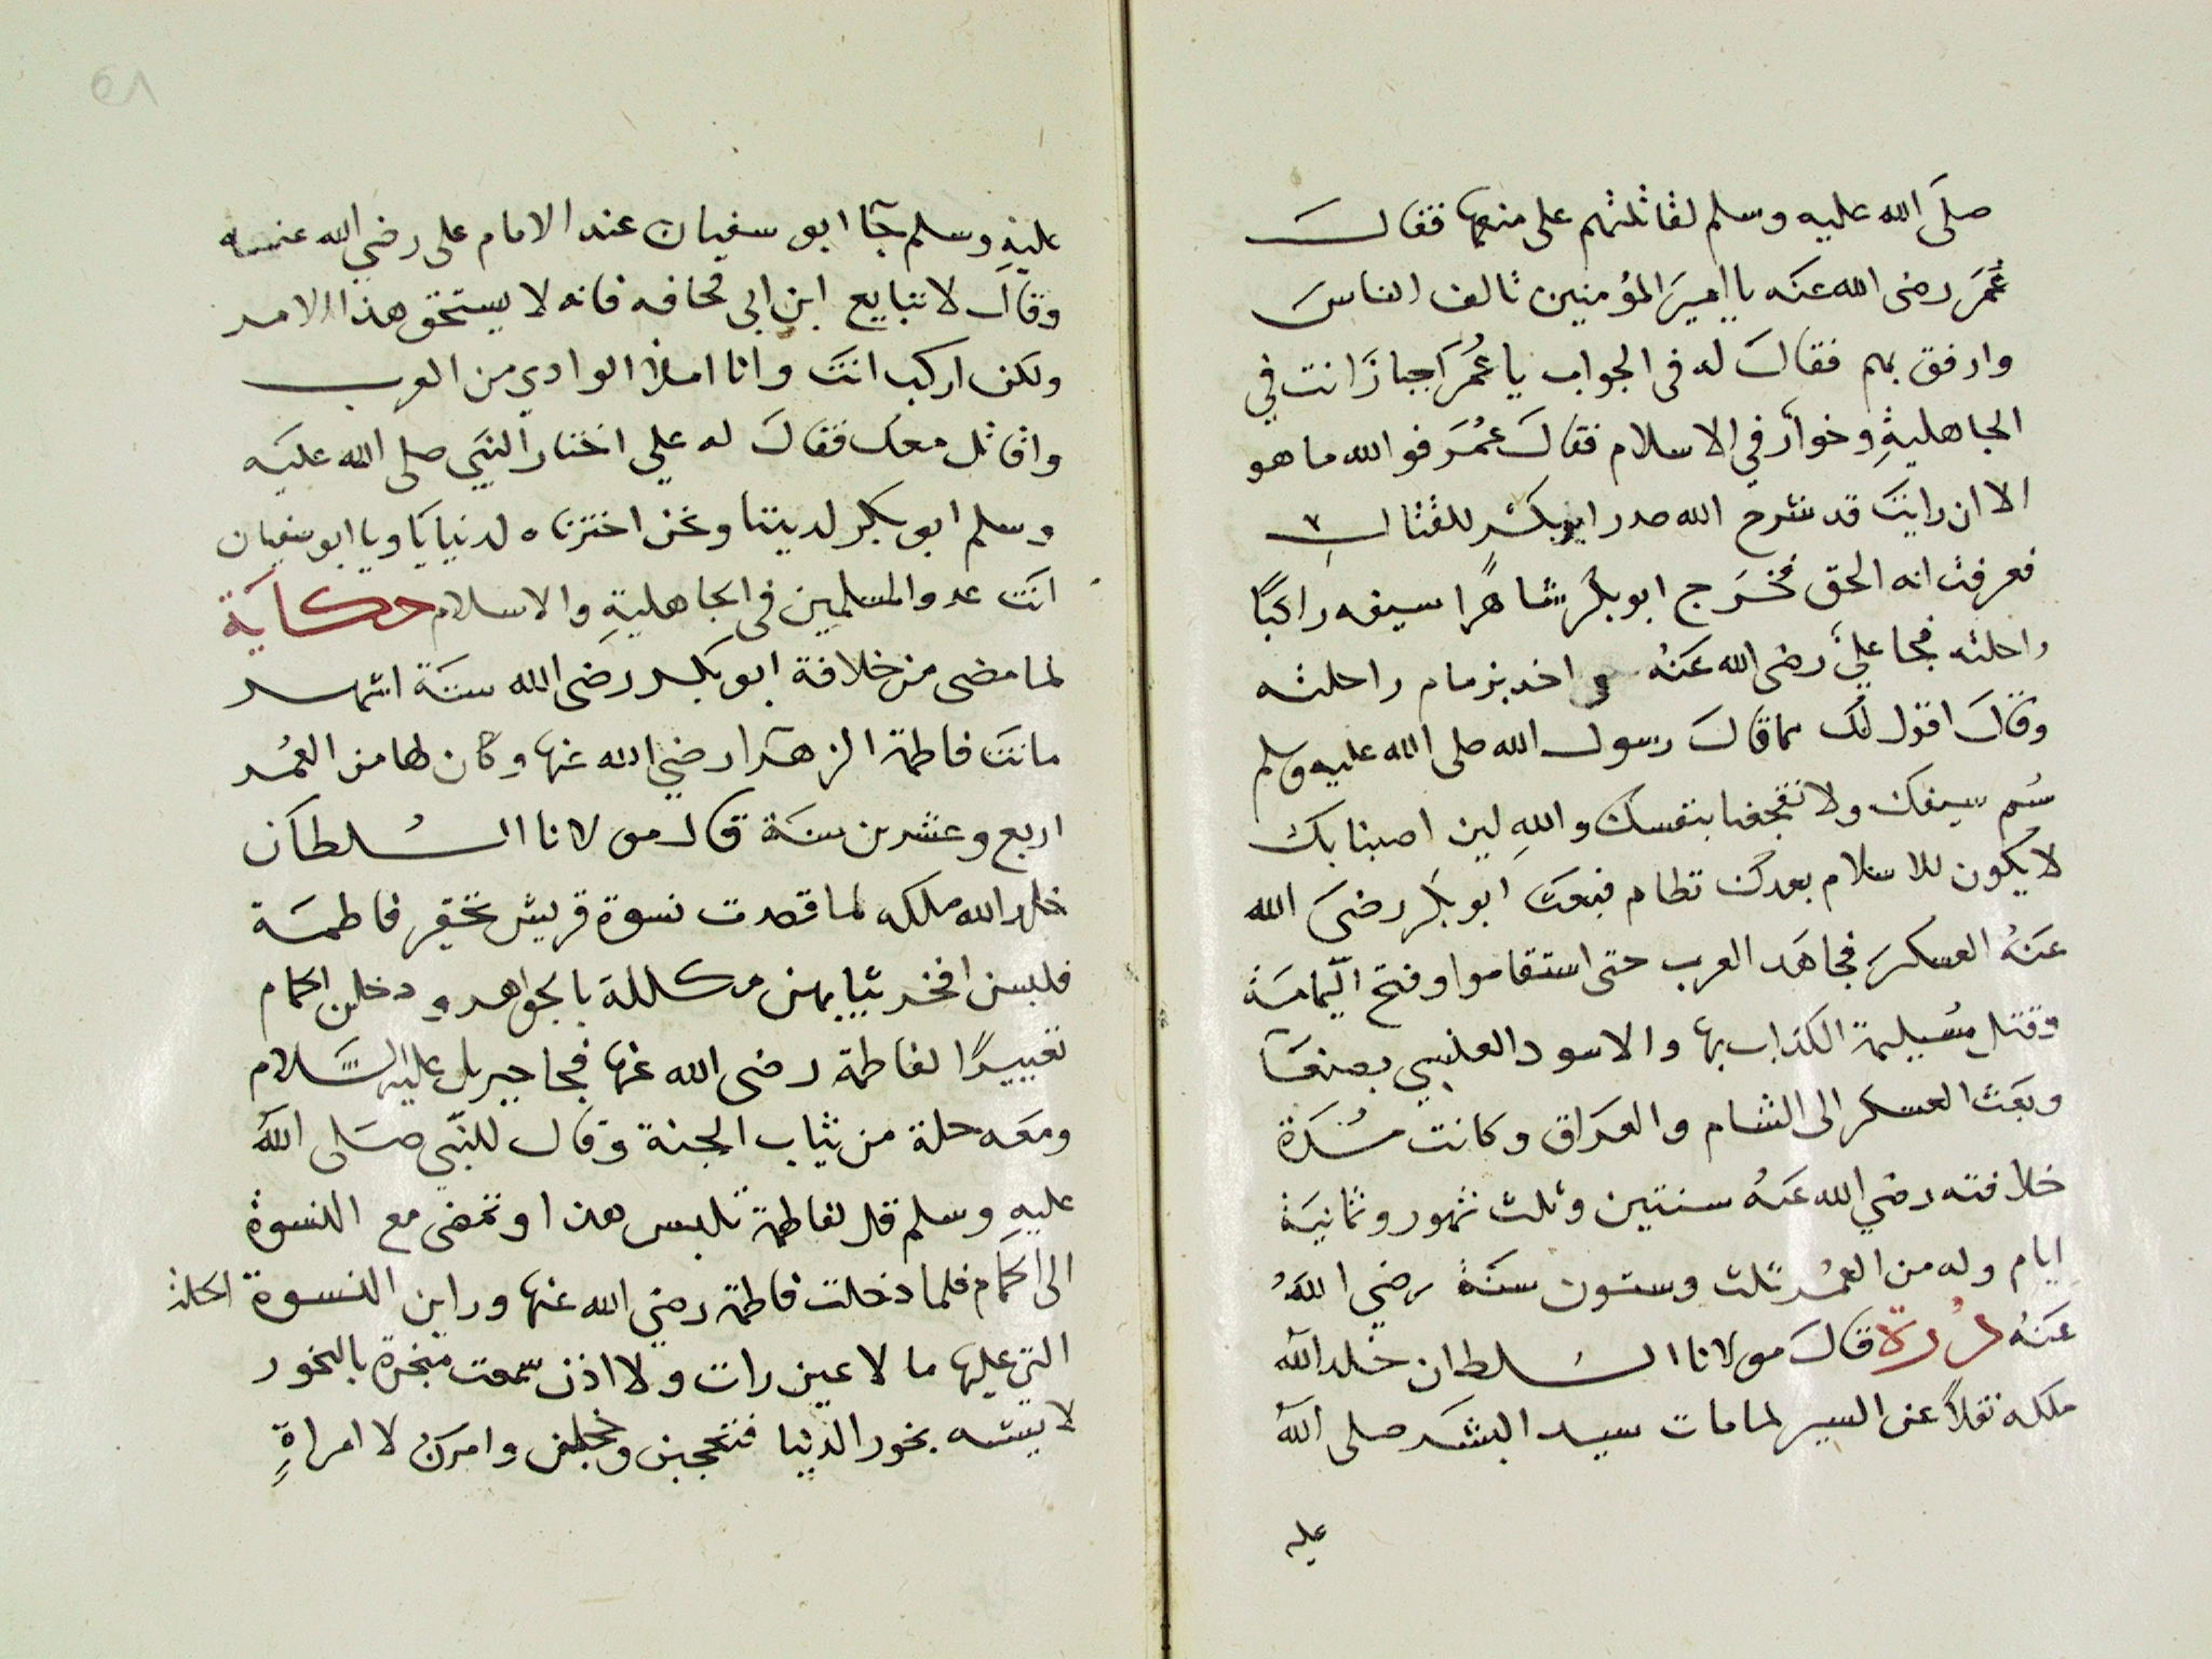 صلَى الله عليه وسلم لقاتلتهم على منعها فقالَ
عُمَر رضى الله عنَه يا اميرَ المؤمنين تالف الناسَ
وارفق بهم فقالَ له فى الجواب يا عُمَر اجبارٌ انت في
الجاهليةِ وخوارٌ في الاسلام فقالَ عمُرَ فو الله ما هو
الا ان رايتَ قد شرح الله صدر ابو بكر للقتال
فعرفت انه الحق فخرَج ابو بكر شاهرًا سيفه راكبًا
راحلته فجا عليٌ رضى الله عنَهُ و اخد بزمام راحلته
وقالَ اقول لكَ ما قالَ رسول الله صلى الله عليه وسلم
شم سيفك ولا تفجعنا بنفسك واللهِ لين اصبنا بك
لا يكون للاسلام بعدك نظام فبعثَ ابو بكر رضىَ الله
عنَهُ العسكرَ فجاهَد العرب حتى استقاموا وفتح اليمامَة
وقتل مسُيلمة الكذاب بها والاسود العنسي بصنعَآ
وبَعَث العسكر الى الشام والعَراق وكانت مُدَة
خلافته رضي الله عنَهُ سنتين وثلث شهور وثمانيَة
ايام وله من العمُر ثلث وستون سنَة رضي اللهُ
عنَهُ دُرة قالَ مولانا السُلطان خلد الله
ملكه نقلاً عن السير لما مات سيد البشَر صلى الله
عليه
٥٨
عليهِ وسلم جآ ابو سفيان عند الامام على رضي الله عنه
وقالَ لا تبايع ابن ابى قحافه فانه لا يستحق هذا الامر
ولكن اركب انتَ وانا املأ الوادي من العرب
واقاتل معك فقالَ له علي اختار النبَي صلى الله عليَه
وسلم ابو بكر لديننا ونحن اخترناه لدنيانَا ويا ابو سفيان
انتَ عدو المسلمين فى الجاهليةِ والاسلام حكايَة
لما مضى من خلافة ابو بكر رضى الله سنَة اشهر
ماتتَ فاطمة الزهَرا رضي الله عنها وكان لها من العمُر
اربع وعشرين سنَة قال مولانا السُلطاَن
خلد الله ملكه لما قصدت نسوة قريش تحقير فاطمَة
فلبسن افخر ثيابهن مكللة بالجواهر ودخلن الحمام
تعييرًا لفاطمة رضى الله عنها فجا جبريل عليه السَّلام
ومعَه حلة من ثياب الجنة وقال للنبَي صَلى الله
عليهِ وسلم قل لفاطمة تلبس هذا وتمضى مع النسوة
الى الحَمام فلما دخلت فاطمة رضي الله عنها وراين النسوة الحلة
التي عليها ما لا عين رات ولا اذن سمعت مبخرة بالبخور
لا يشبه بخور الدنيا فتعجبن وخجلن وامركن لا امراةٍ